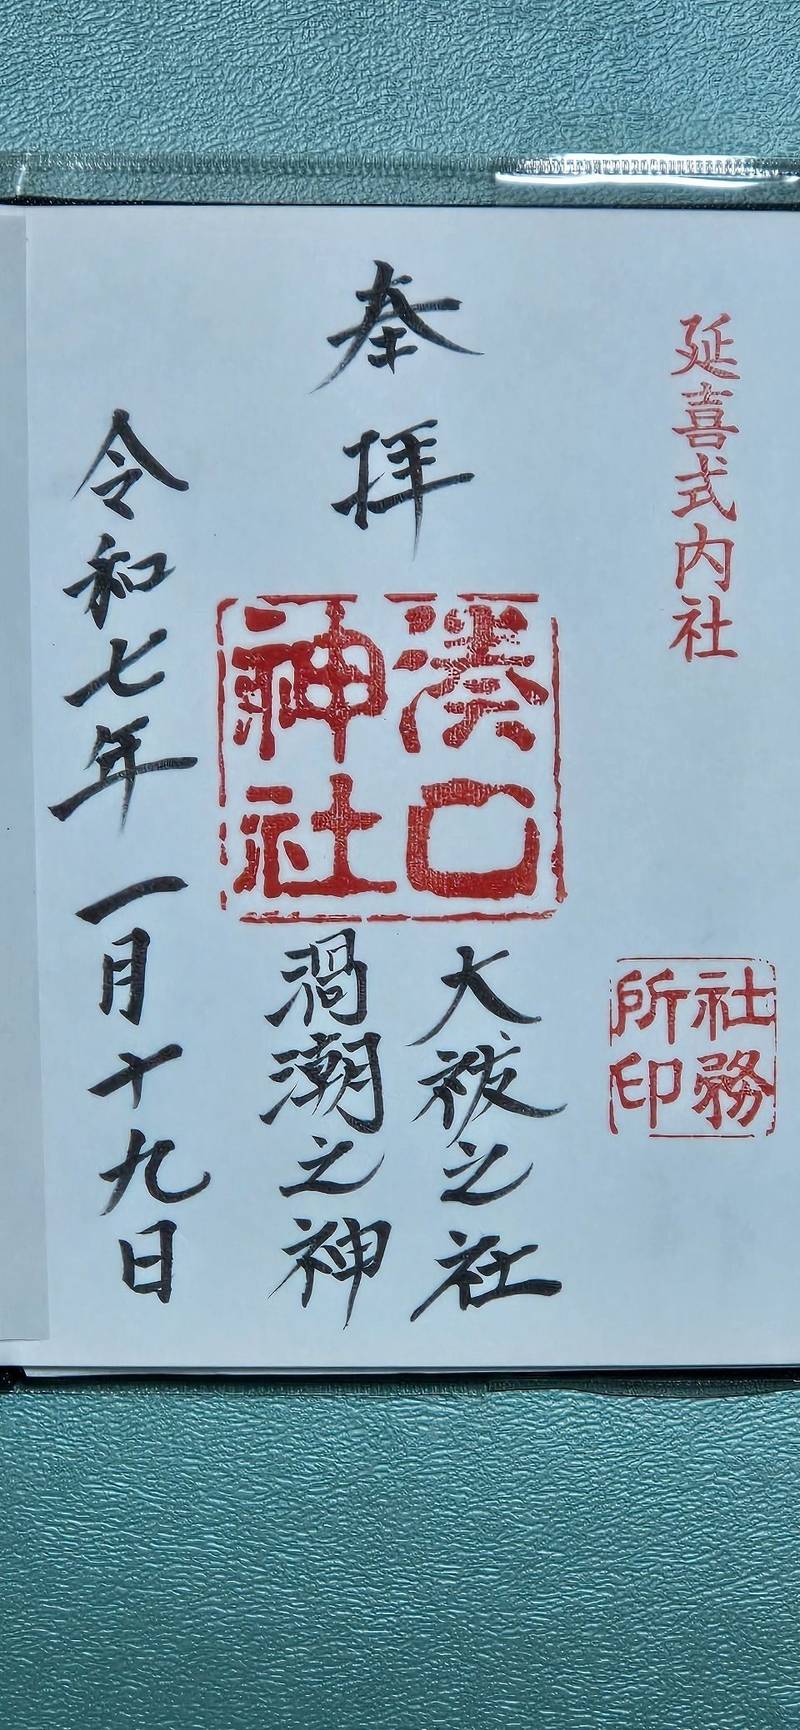 延喜式内社
社務
所印
奉拝
湊口
神社
大祓之社
渦潮之神
令和七年一月十九日